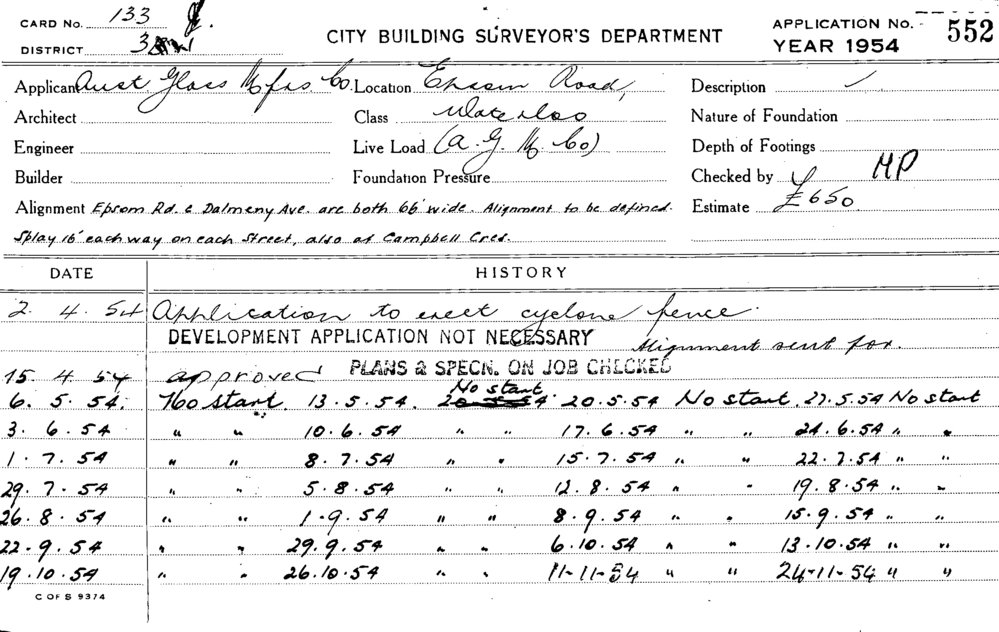 CARD No. 133
DISTRICT 3
CITY BUILDING SURVEYOR'S DEPARTMENT
APPLICATION No. 552
YEAR 1954
Applicant Aust Glass Mfrs. Co. Location Epsom Road, Description
Architect Class Waterloo Nature of Foundation
Engineer Live Load (A. G. M. Co) Depth of Footings
Builder Foundation Pressure Checked by MP
Alignment Epsom Rd. & Dalmeny Ave. are both 66' wide. Alignment to be defined. Estimate £650
Splay 16' each way on each Street, also at Campbell Cres.
DATE HISTORY
2. 4. 54 Application to erect cyclone fence.
DEVELOPMENT APPLICATION NOT NECESSARY Alignment sent for.
15. 4. 54 approved PLANS & SPECN. ON JOB CHECKED
6. 5. 54. No start. 13.5.54. No start 20.5.54 No start. 27.5.54 No start
3. 6. 54 " " 10.6.54 " " 17.6.54 " " 24.6.54 " "
1. 7. 54 " " 8.7.54 " " 15.7.54 " " 22.7.54 " "
29. 7. 54 " " 5.8.54 " " 12.8.54 " " 19.8.54 " "
26. 8. 54 " " 1.9.54 " " 8.9.54 " " 15.9.54 " "
22. 9. 54 " " 29.9.54 " " 6.10.54 " " 13.10.54 " "
19. 10. 54 " " 26.10.54 " " 11-11-54 " " 24-11-54 " "
C OF S 9374